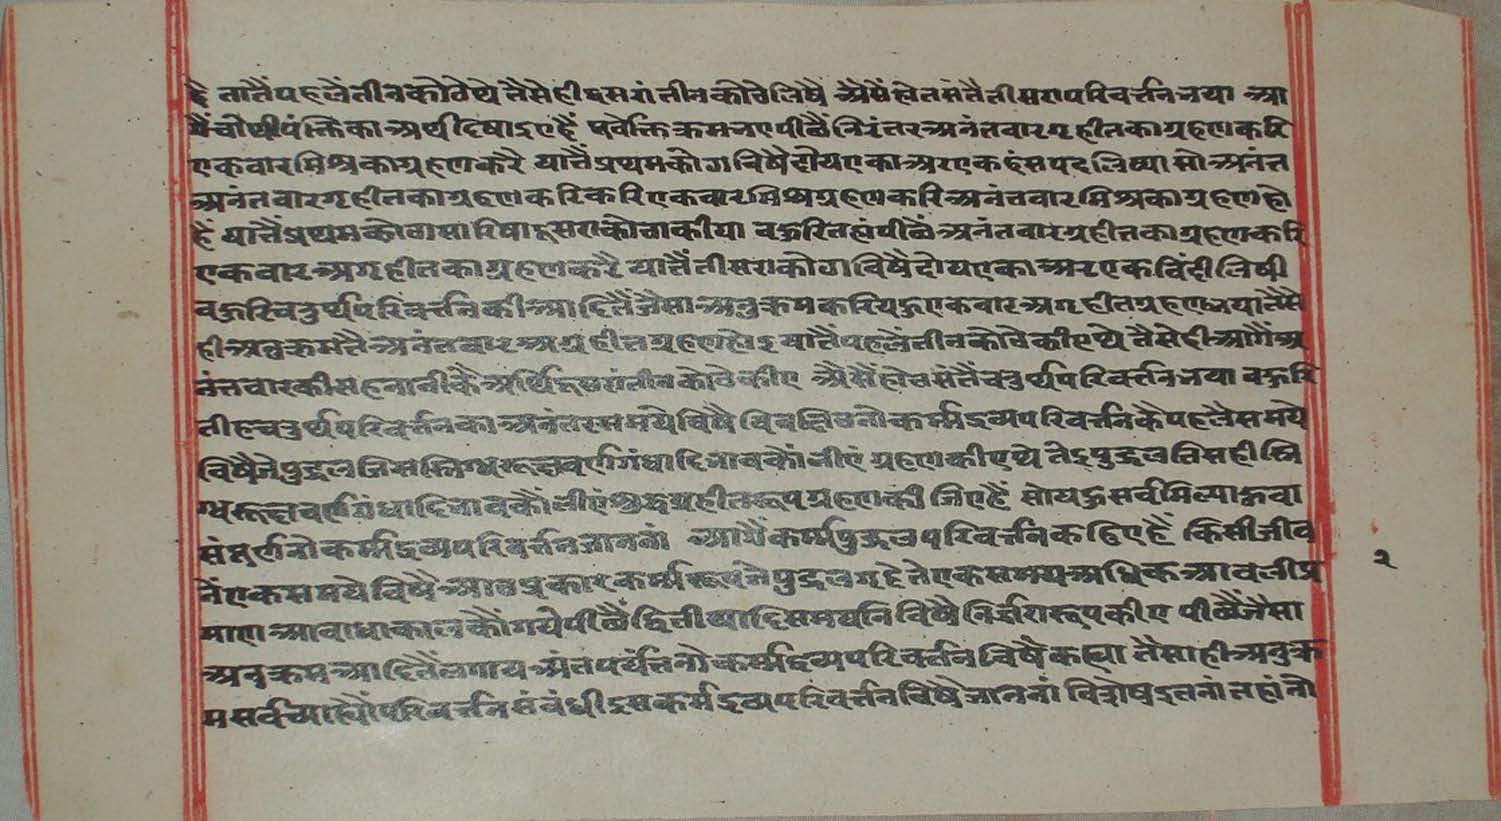 है तातैं पहलैं तीन कोठे थे तैसे ही दूसरां तीन कोठे लिषै असैं होत संतैं तीसरा परिवर्त्तन भया आ
गैं चौथी पंक्ति का अर्थ दिषाइए हैं पूर्वोक्त क्रम भए पीछैं निरंतर अनंतवार गृहीत का ग्रहण करि
एकवार मिश्र का ग्रहण करै यातैं प्रथम कोठा विषै दोय एका अर एक हंसपद लिष्या सो अनंत
अनंतवार गृहीत का ग्रहण करि करि एकवार मिश्र ग्रहण करि अनंतवार मिश्र का ग्रहण हो
हैं यातैं प्रथम कोठा सारिषा दूसरा कोठा कीया बहुरि तहां पीछैं अनंतवार ग्रहीत का ग्रहण करि
एकवार अगृहीत का ग्रहण करै यातैं तीसरा कोठा विषै दोय एका अर एक बिंदी लिषी
बहुरि चतुर्थ परिवर्त्तन की आदि तैं जैसा अनुक्रम करि यहु एकवार अगृहीत ग्रहण भया तैसे
ही अनुक्रम तैं अनंतवार अग्रहीत ग्रहण होइ यातैं पहलैं तीन कोठे कीए थे तैसे ही आगैं अ
नंतवार की सहनानी कै अर्थि दूसरां तीन कोठे कीए असैं होत संतैं चतुर्थ परिवर्त्तन भया बहुरि
तीह चतुर्थ परिवर्त्तन का अनंतर समय विषै विवक्षित नोकर्म्म द्रव्य परिवर्त्तन कै पहलै समये
विषै जे पुद्गल जिस स्निग्ध रूक्ष वर्ण गंधादि भाव कौं लीएं ग्रहण कीए थे तेइ पुद्गल तिस ही स्नि
ग्ध रूक्ष वर्ण गंधादि भाव कौं लीएं शुद्ध ग्रहीतरूप ग्रहण कीजिए हैं सो यहु सर्व मिल्या हुवा
संपूर्ण नोकर्म्म द्रव्य परिवर्त्तन जाननां आगैं कर्म्म पुद्गल परिवर्त्तन कहिए हैं किसी जीव
नें एक समये विषै आठ प्रकार कर्म्मरूप जे पुद्गल गृहे ते एक समय अधिक आवली प्र
माण आबाधा काल कौं गये पीछैं द्वितीयादि समयनि विषै निर्जरारूप कीए पीछैं जैसा
अनुक्रम आदि तैं लगाय अंत पर्यंत नोकर्म्म द्रव्य परिवर्त्तन विषै कह्या तैसा ही अनुक्र
म सर्व च्यास्यों परिवर्त्तन संबंधी इस कर्म द्रव्य परिवर्त्तन विषै जाननां विशेष इतनां तहां नो
२